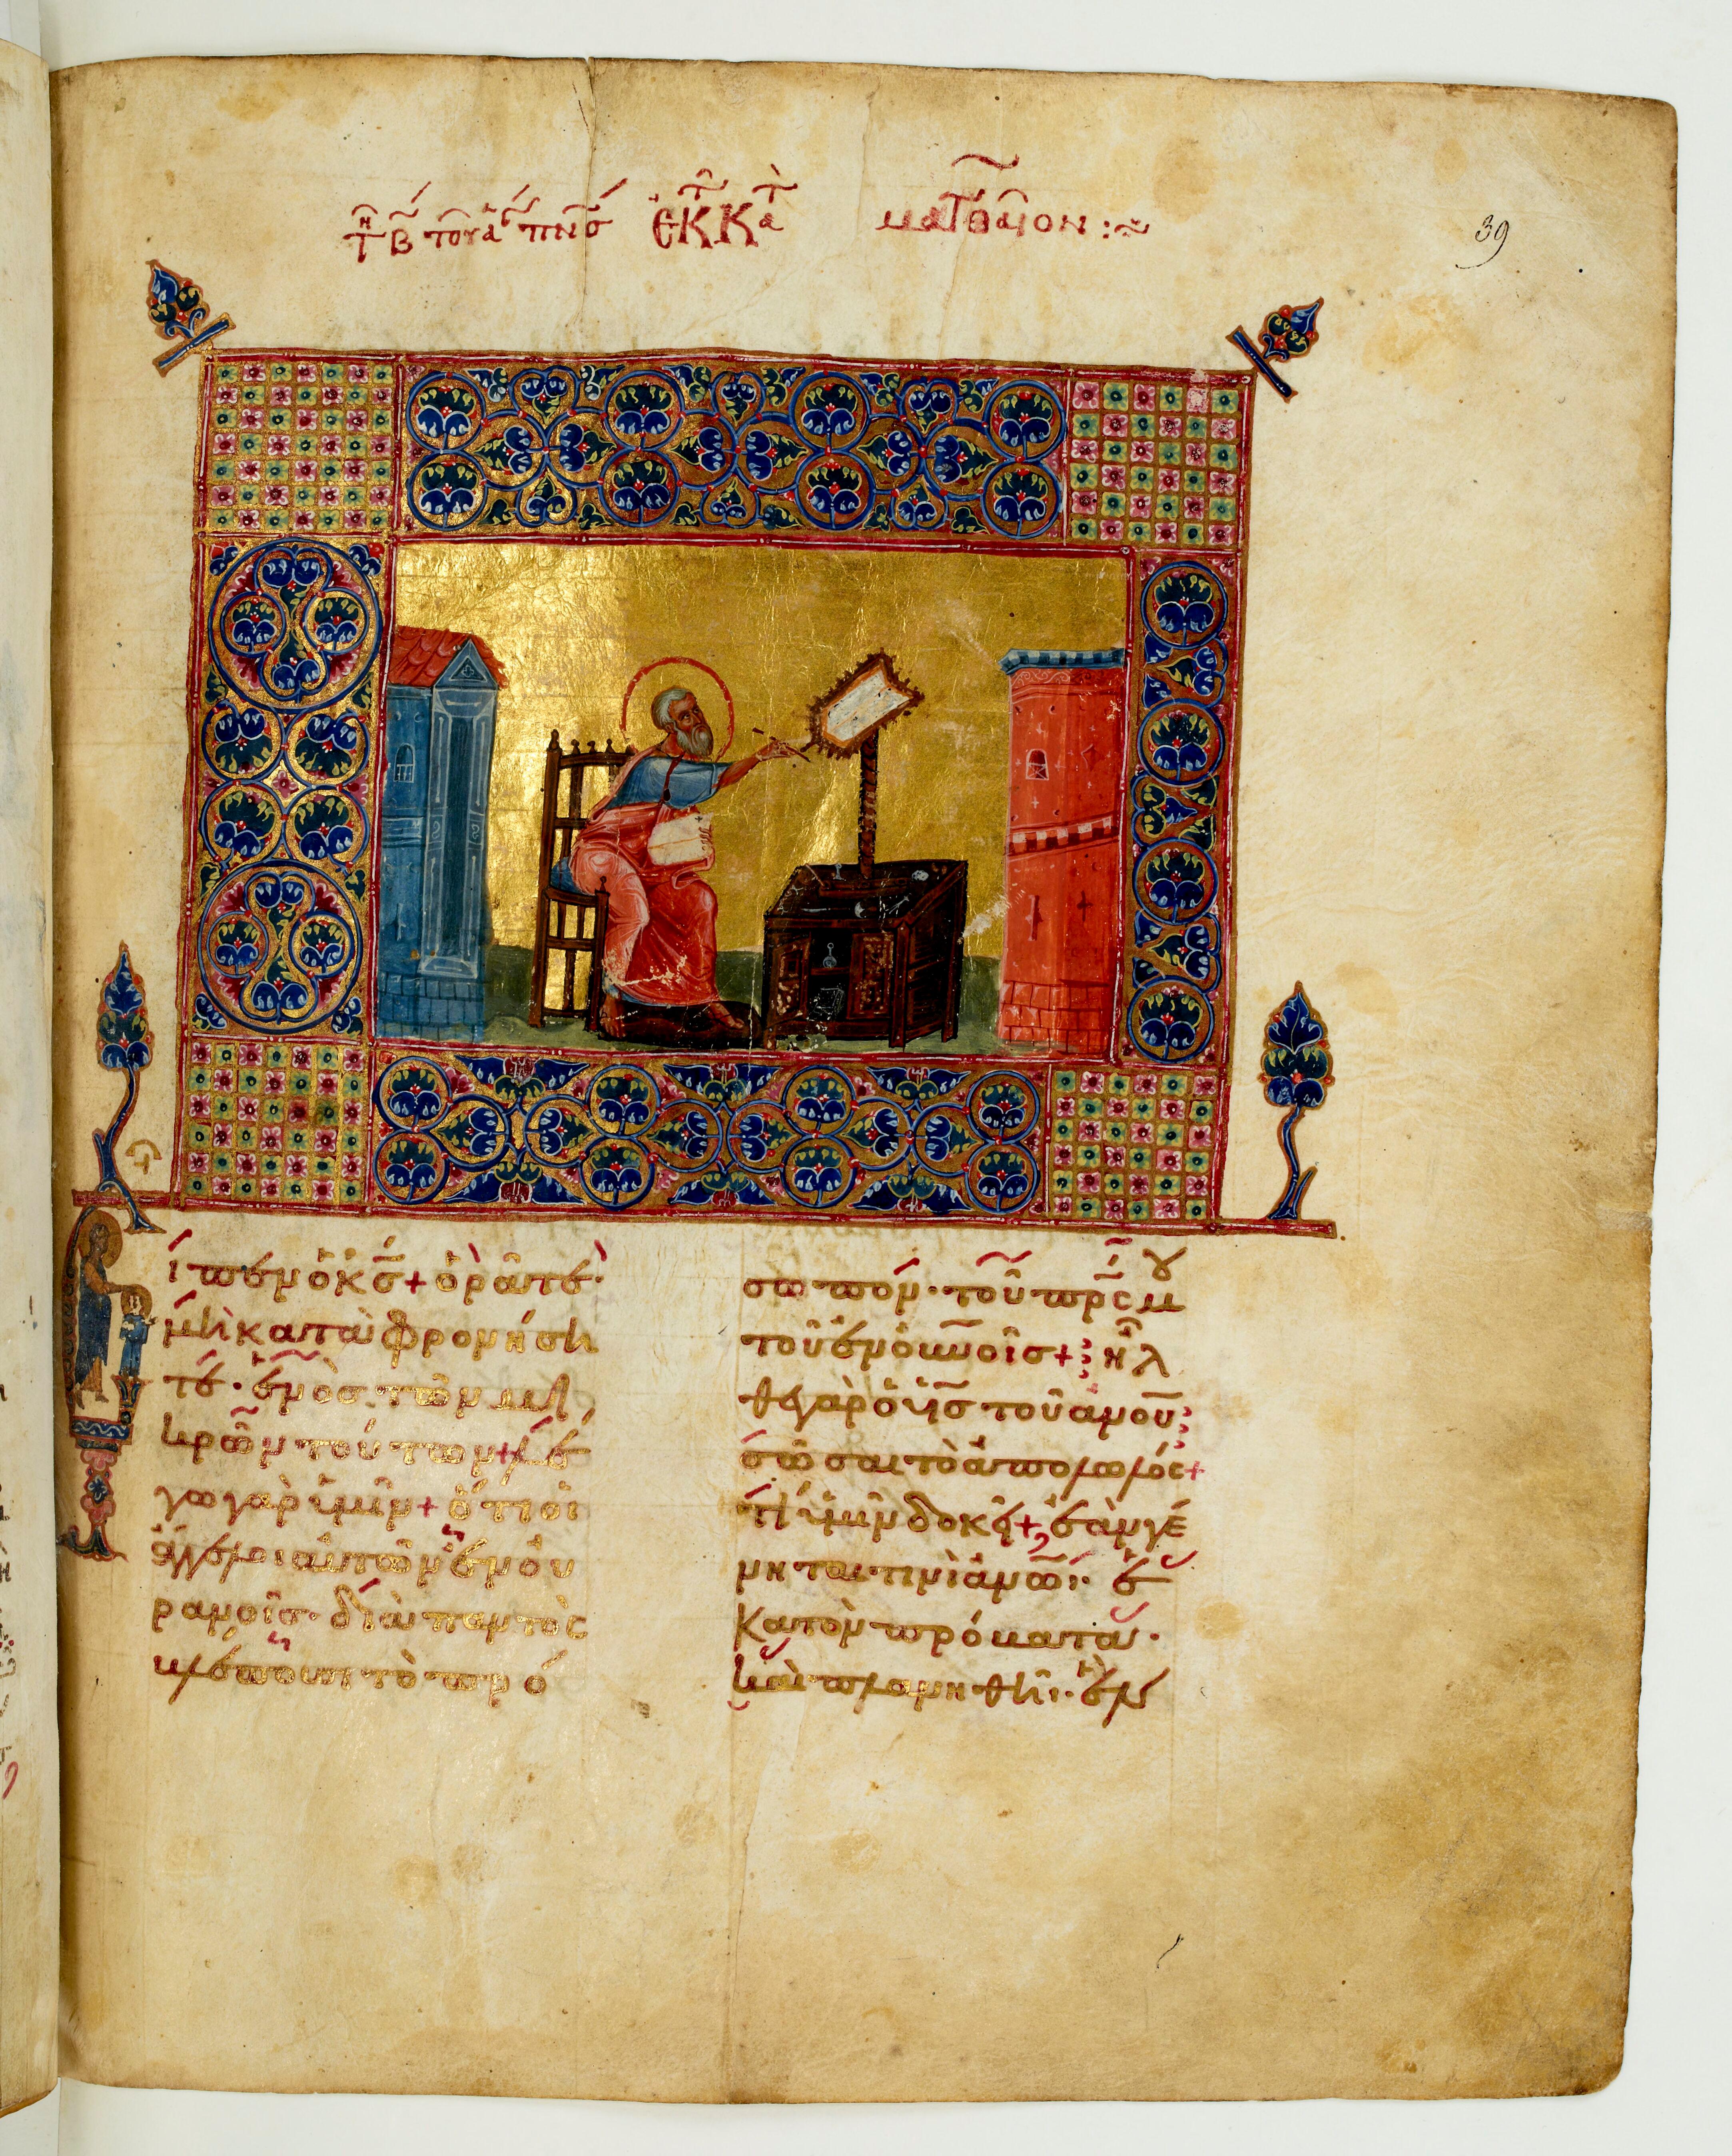 τῇ Β τοῦ ἁγ πνς ἐκ τ κατ Ματθαῖον :~
39
ἶπεν ὁ κς + ὁρᾶτε
μὴ καταφρονήση
τε · ἑνὸς τῶν μι
κρῶν τούτων + λέ
γω γὰρ ὑμῖν + ὅτι οἱ
ἄγγελοι αὐτῶν ἐν οὐ
ρανοῖς · διὰ παντὸς
βλέπουσι τὸ πρό
σωπον · τοῦ πρς μου
τοῦ ἐν οὐνοῖς + ἦλ
θε γὰρ ὁ υἱς τοῦ ἀνου
σῶσαι τὸ ἀπολωλός +
τί ὑμῖν δοκεῖ + ἐὰν γέ
νηται τινὶ ἀνωι · ἑ
κατὸν πρόβατα ·
καὶ πλανηθῆι · ἓν